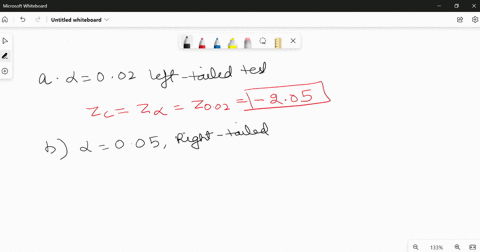 Microsoft Whiteboard
Untitled whiteboard
a. α = 0.02 left-tailed test
Zc = Zα = Z0.02 = -2.05
b) α = 0.05, Right-tailed
133%